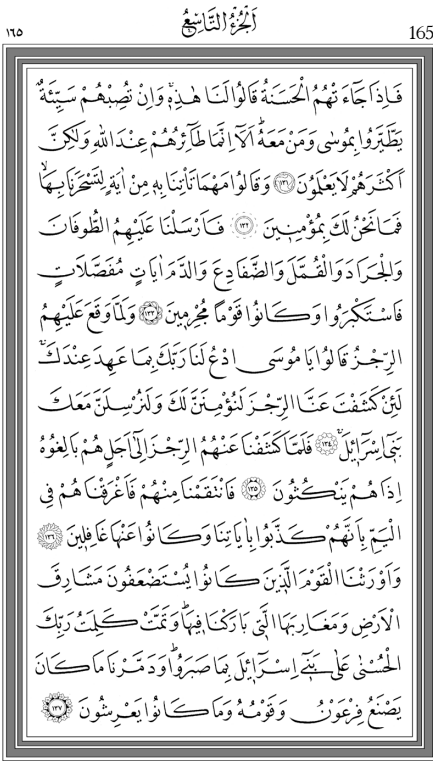 ١٦٥ اَلْجُزْءُ التَّاسِعُ 165
فَاِذَا جَٓاءَتْهُمُ الْحَسَنَةُ قَالُوا لَنَا هٰذِه۪ۚ وَاِنْ تُصِبْهُمْ سَيِّئَةٌ
يَطَّيَّرُوا بِمُوسٰى وَمَنْ مَعَهُۜ اَلَٓا اِنَّمَا طَٓائِرُهُمْ عِنْدَ اللّٰهِ وَلٰكِنَّ
اَكْثَرَهُمْ لَا يَعْلَمُونَ ﴿١٣١﴾ وَقَالُوا مَهْمَا تَأْتِنَا بِه۪ مِنْ اٰيَةٍ لِتَسْحَرَنَا بِهَاۙ
فَمَا نَحْنُ لَكَ بِمُؤْمِن۪ينَ ﴿١٣٢﴾ فَاَرْسَلْنَا عَلَيْهِمُ الطُّوفَانَ
وَالْجَرَادَ وَالْقُمَّلَ وَالضَّفَادِعَ وَالدَّمَ اٰيَاتٍ مُفَصَّلَاتٍ
فَاسْتَكْبَرُوا وَكَانُوا قَوْمًا مُجْرِم۪ينَ ﴿١٣٣﴾ وَلَمَّا وَقَعَ عَلَيْهِمُ
الرِّجْزُ قَالُوا يَا مُوسَى ادْعُ لَنَا رَبَّكَ بِمَا عَهِدَ عِنْدَكَۚ
لَئِنْ كَشَفْتَ عَنَّا الرِّجْزَ لَنُؤْمِنَنَّ لَكَ وَلَنُرْسِلَنَّ مَعَكَ
بَن۪ٓي اِسْرَٓائ۪لَۚ ﴿١٣٤﴾ فَلَمَّا كَشَفْنَا عَنْهُمُ الرِّجْزَ اِلٰٓى اَجَلٍ هُمْ بَالِغُوهُ
اِذَا هُمْ يَنْكُثُونَ ﴿١٣٥﴾ فَانْتَقَمْنَا مِنْهُمْ فَاَغْرَقْنَاهُمْ فِي
الْيَمِّ بِاَنَّهُمْ كَذَّبُوا بِاٰيَاتِنَا وَكَانُوا عَنْهَا غَافِل۪ينَ ﴿١٣٦﴾
وَاَوْرَثْنَا الْقَوْمَ الَّذ۪ينَ كَانُوا يُسْتَضْعَفُونَ مَشَارِقَ
الْاَرْضِ وَمَغَارِبَهَا الَّت۪ي بَارَكْنَا ف۪يهَاۜ وَتَمَّتْ كَلِمَتُ رَبِّكَ
الْحُسْنٰى عَلٰى بَن۪ٓي اِسْرَٓائ۪لَ بِمَا صَبَرُواۜ وَدَمَّرْنَا مَا كَانَ
يَصْنَعُ فِرْعَوْنُ وَقَوْمُهُ وَمَا كَانُوا يَعْرِشُونَ ﴿١٣٧﴾